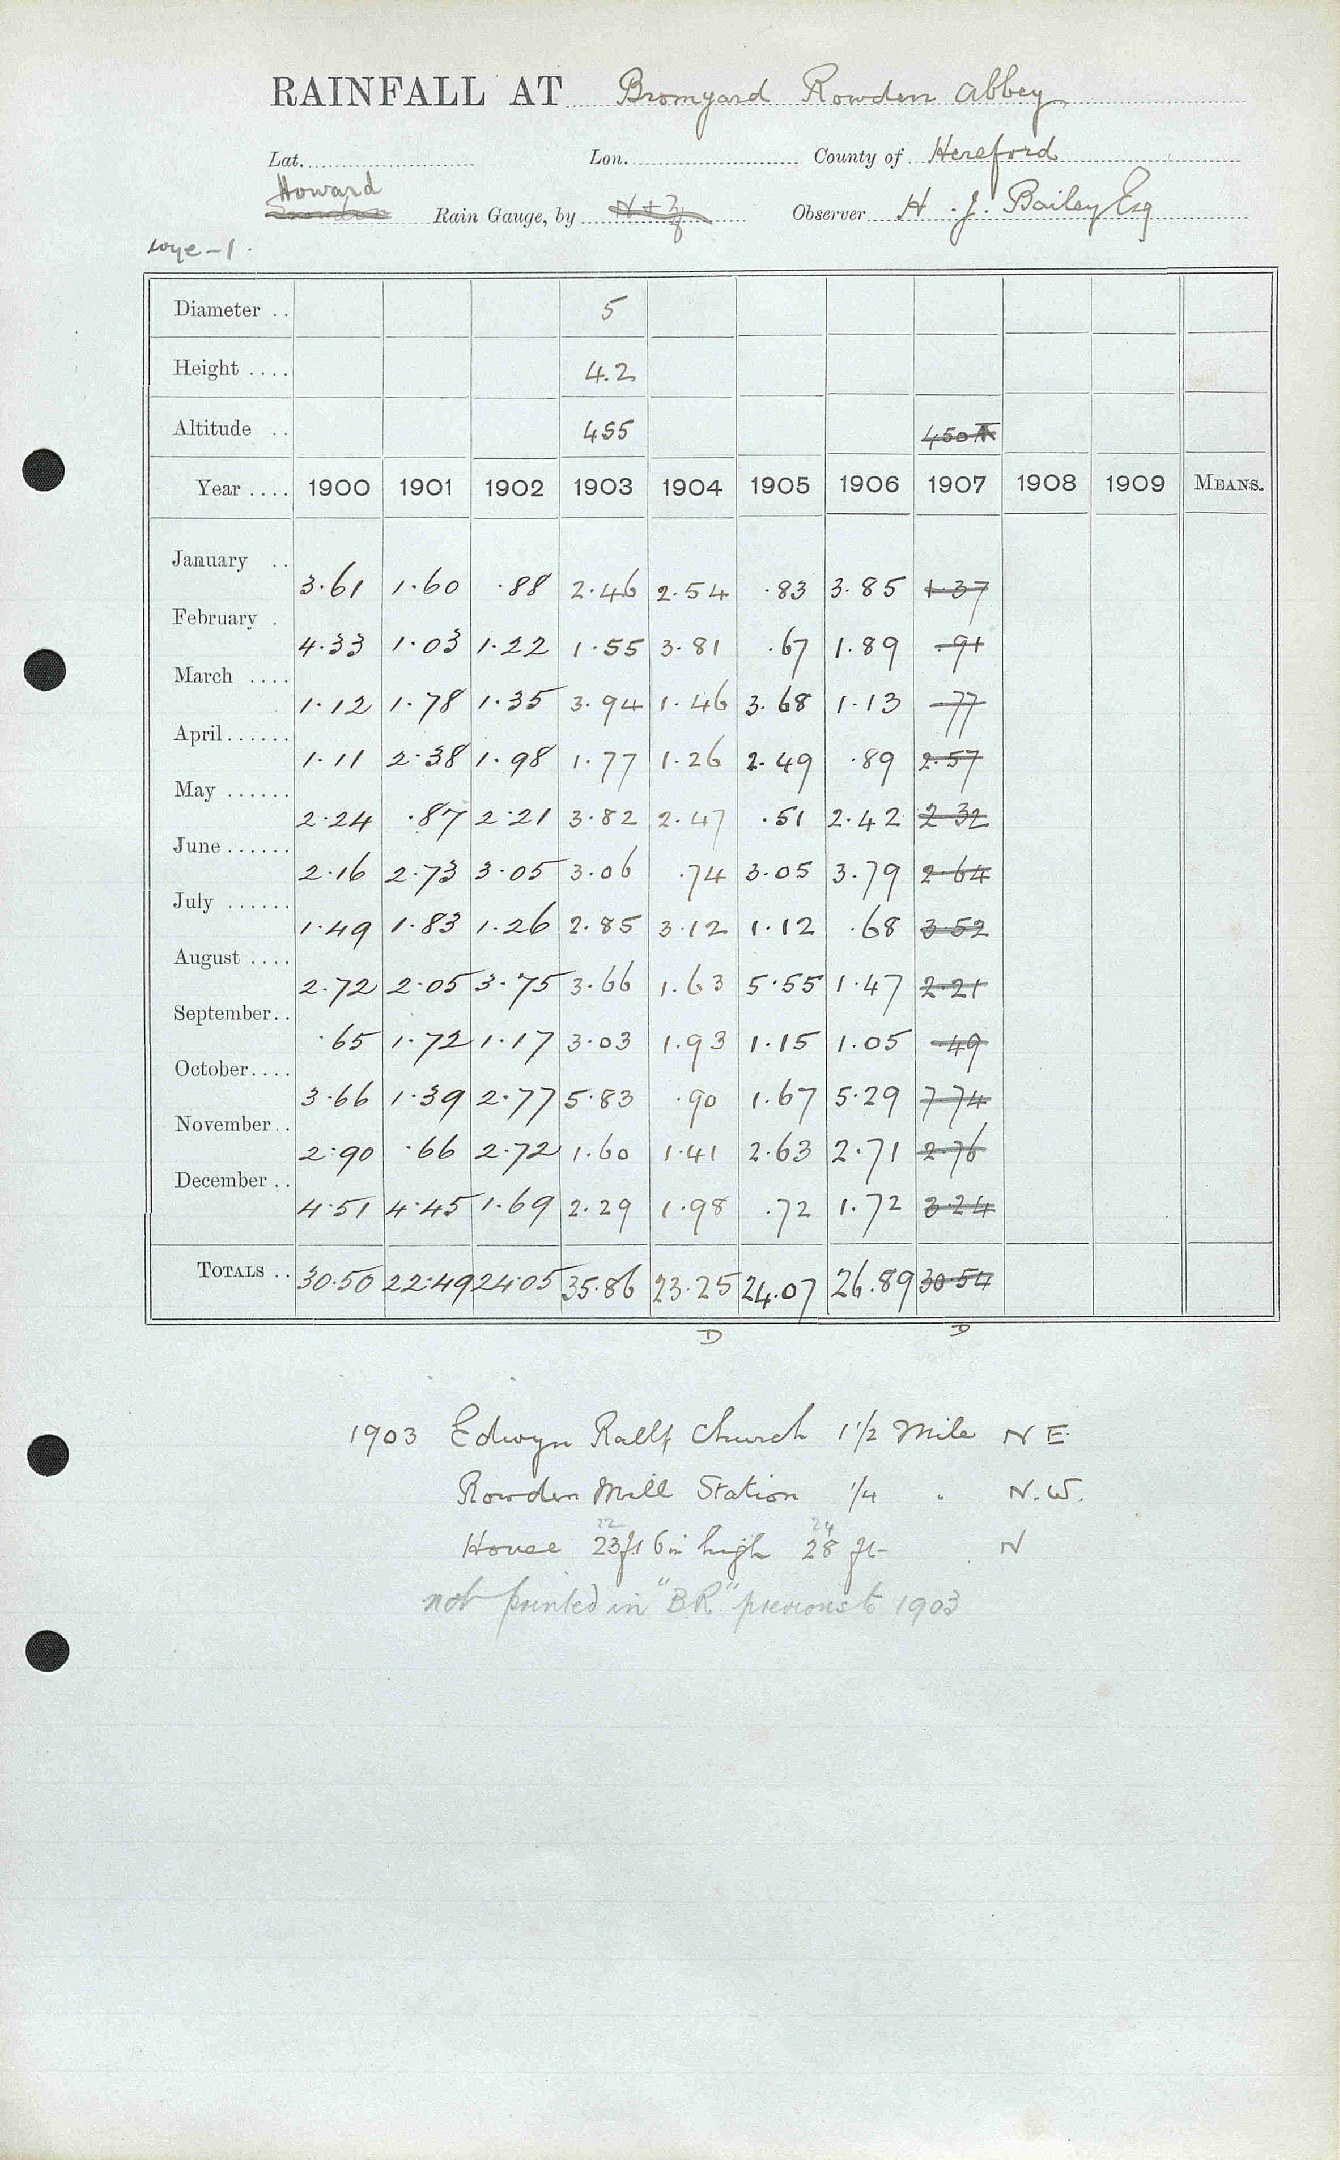 RAINFALL AT Bromyard Rowden Abbey
Lat. Lon. County of Hereford
Howard
Snowdon Rain Gauge, by N & Z Observer H. J. Bailey Esq
Wye-1.
Diameter .. 5
Height .... 4.2
Altitude .. 455 450
Year .... 1900 1901 1902 1903 1904 1905 1906 1907 1908 1909 MEANS.
January .. 3.61 1.60 .88 2.46 2.54 .83 3.85 1.37
February . 4.33 1.03 1.22 1.55 3.81 .67 1.89 .91
March .... 1.12 1.78 1.35 3.94 1.46 3.68 1.13 .77
April ...... 1.11 2.38 1.98 1.77 1.26 2.49 .89 2.57
May ...... 2.24 .87 2.21 3.82 2.47 .51 2.42 2.32
June ...... 2.16 2.73 3.05 3.06 .74 3.05 3.79 2.64
July ...... 1.49 1.83 1.26 2.85 3.12 1.12 .68 3.52
August .... 2.72 2.05 3.75 3.66 1.63 5.55 1.47 2.21
September.. .65 1.72 1.17 3.03 1.93 1.15 1.05 .49
October.... 3.66 1.39 2.77 5.83 .90 1.67 5.29 7.74
November.. 2.90 .66 2.72 1.60 1.41 2.63 2.71 2.76
December .. 4.51 4.45 1.69 2.29 1.98 .72 1.72 3.24
TOTALS .. 30.50 22.49 24.05 35.86 23.25 24.07 26.89 30.54
D D
1903 Edwyn Ralf Church 1 1/2 Mile N E.
Rowden Mill Station 1/4 " N.W.
22 24
House 23ft 6in high 28 ft N
not printed in "B.R." previous to 1903